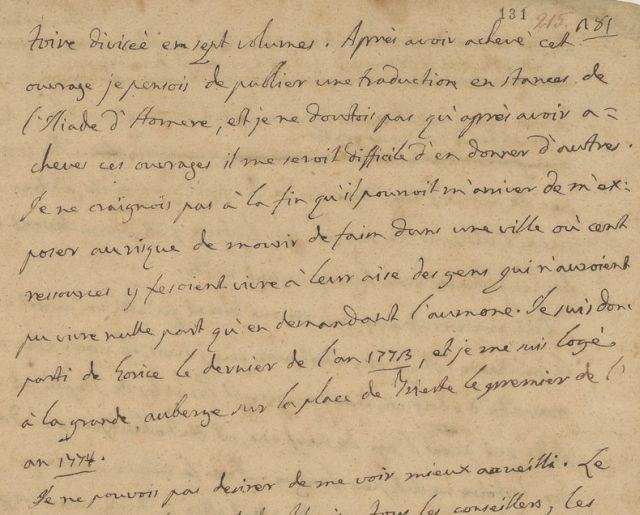 131 215. 181
toire divisée en sept volumes. Après avoir achevé cet
ouvrage je pensois de publier une traduction en stances de
l'Iliade d'Homere, et je ne doutois pas qu'après avoir a=
chevés ces ouvrages il me seroit difficile d'en donner d'autres.
Je ne craignois pas à la fin qu'il pourroit m'arriver de m'ex:
poser au risque de mourir de faim dans une ville où cent
ressources y fesoient vivre à leur aise des gens qui n'auroient
pu vivre nulle part qu'en demandant l'aumone. Je suis donc
parti de Gorice le dernier de l'an 1773, et je me suis logé
à la grande auberge sur la place de Trieste le premier de l'
an 1774.
Je ne pouvois pas desirer de me voir mieux accueilli. Le
tous les conseillers, les